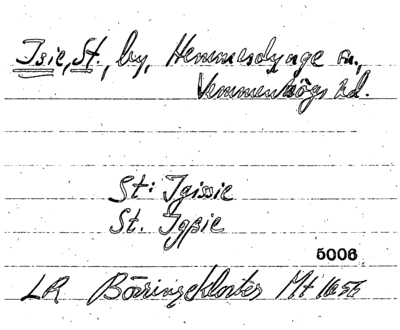 Isie, St., by, Hemmesdynge sn.,
Vemmenhögs hd.
St: Igissie
St. Igssie
5006
LR Börringekloster Mt 1655